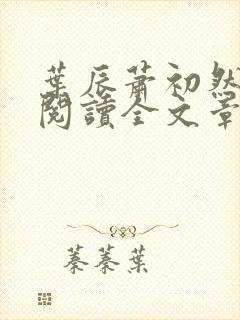 葉辰蕭初然
閱讀全文章
蓁蓁葉